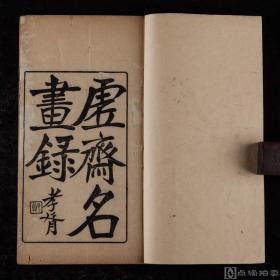 虚齋名
畫錄
孝胥
点滴拍卖